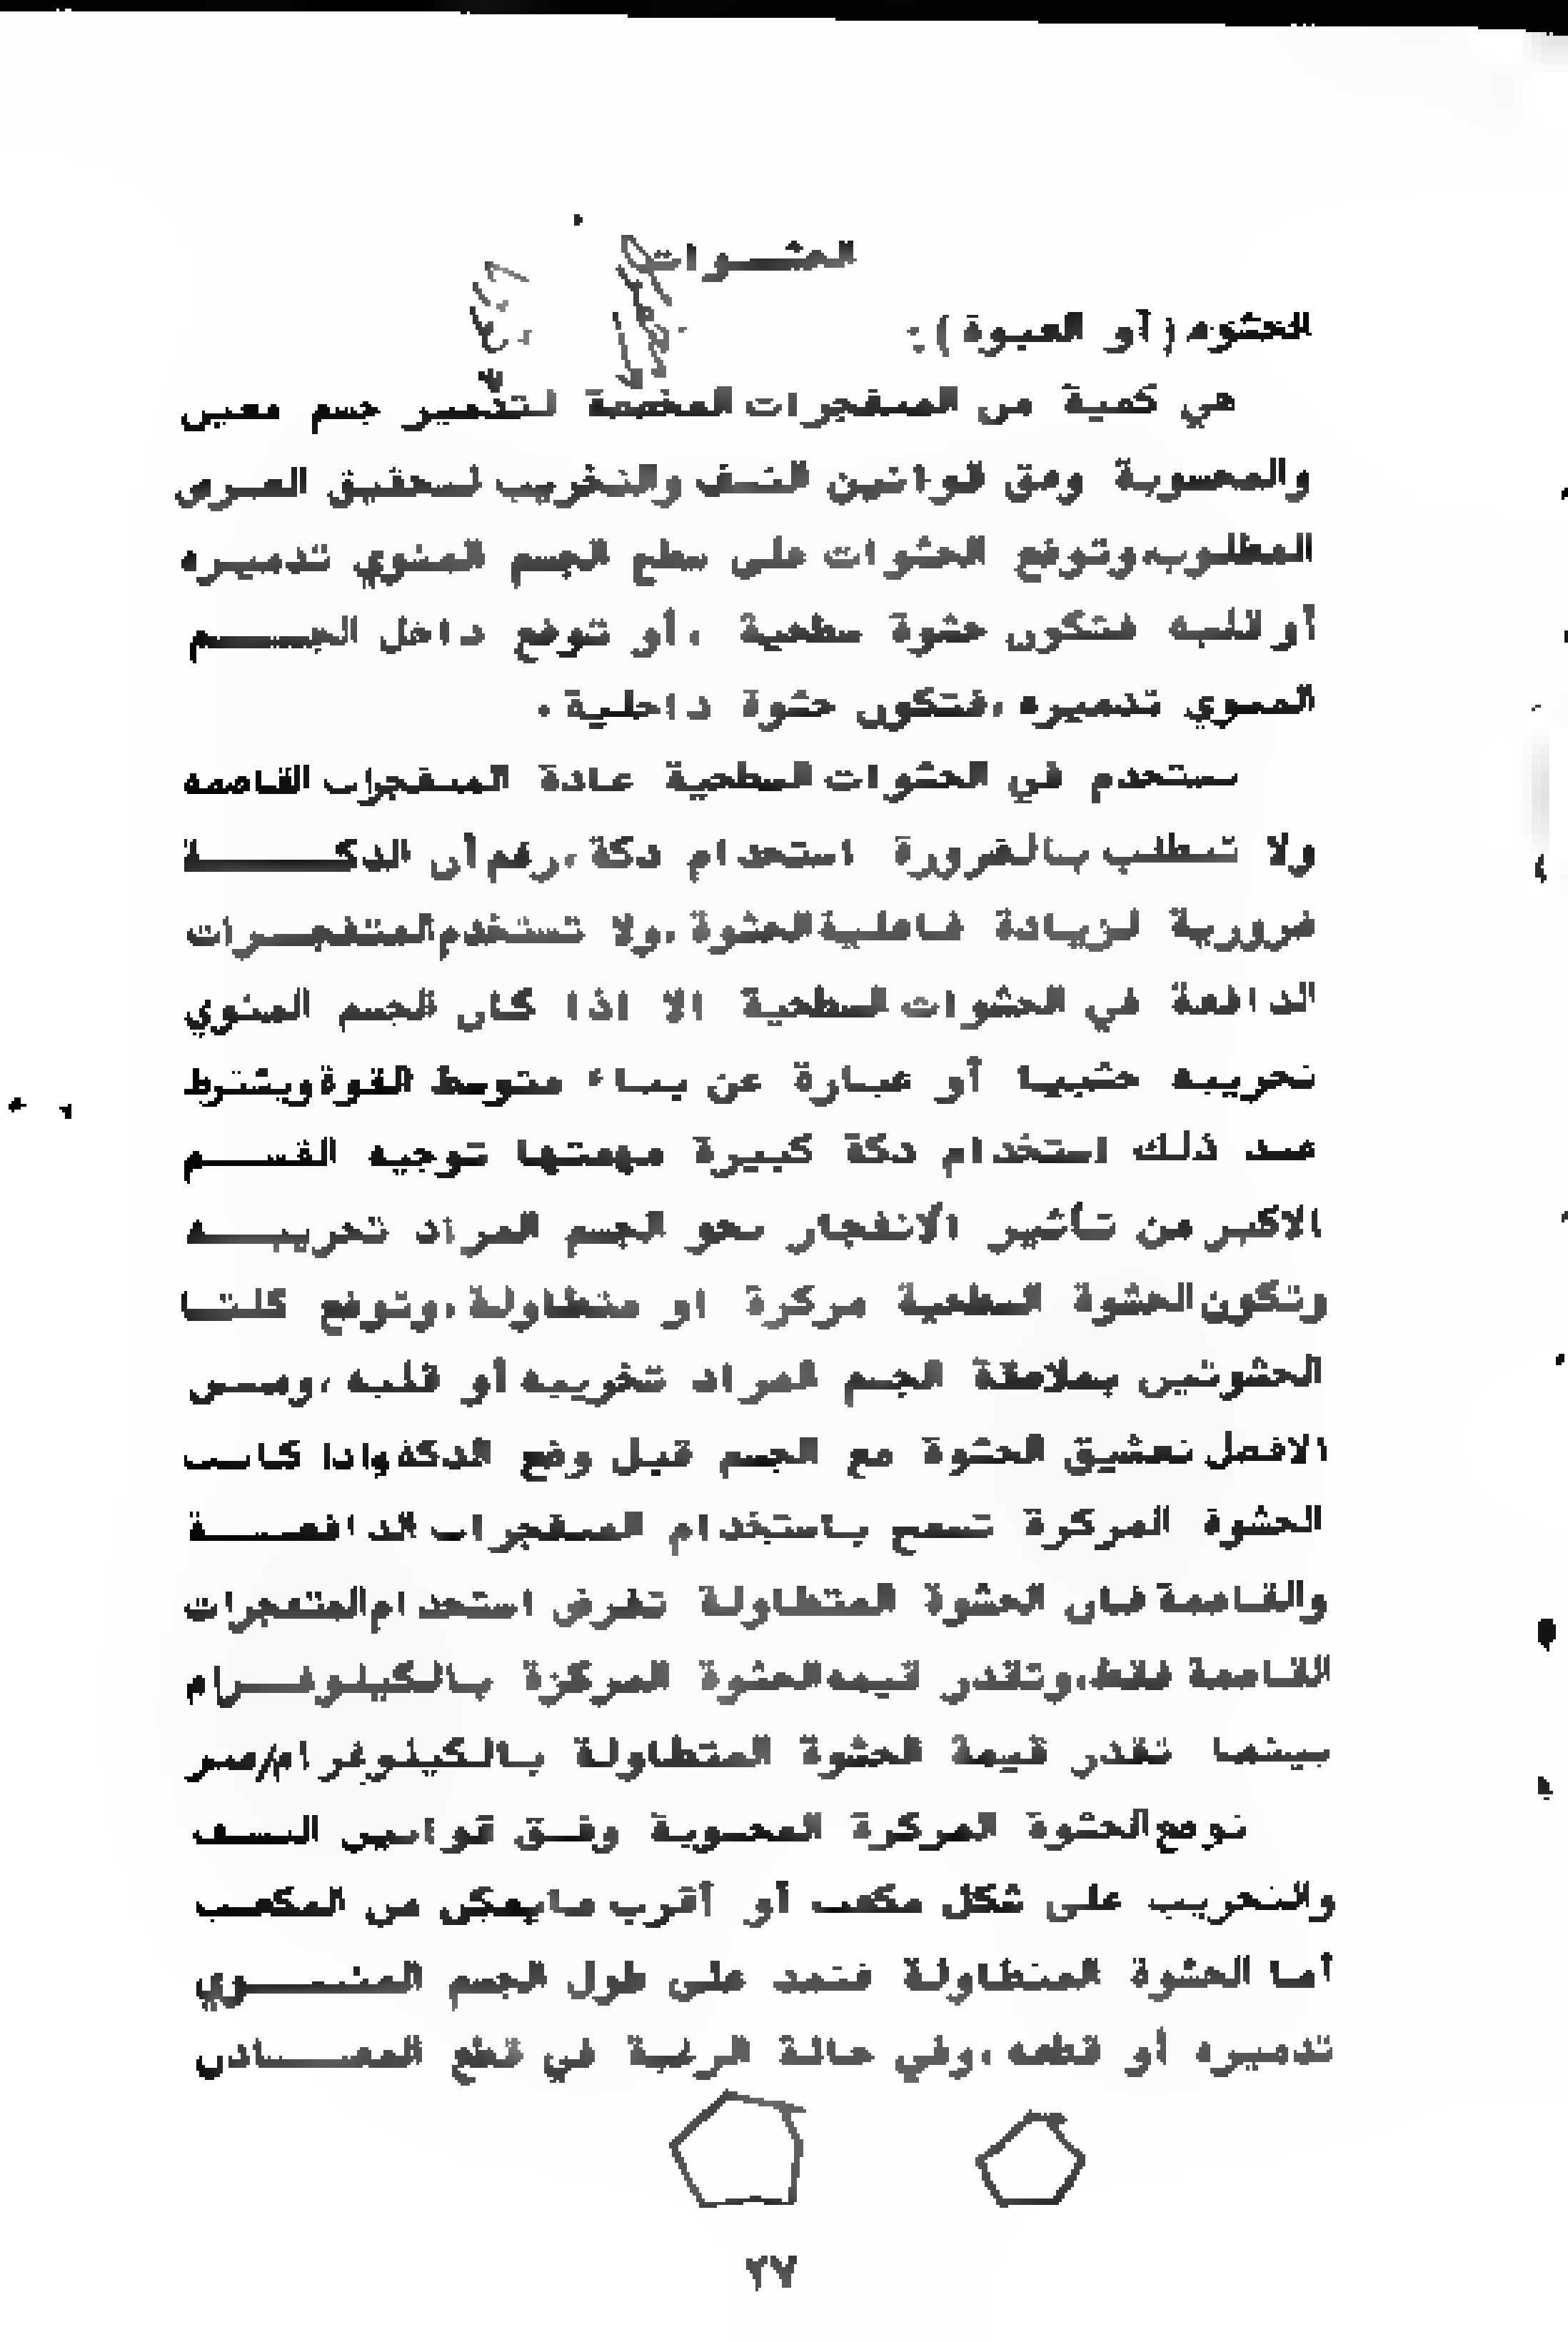 الحشـوات
الحشوه (أو العبوة):
هي كمية من المتفجرات المخصصة لتدمير جسم معين
والمحسوبة وفق قوانين النسف والتخريب لتحقيق الغرض
المطلوب،وتوضع الحشوات على سطح الجسم المنوي تدميره
أو قلبه فتكون حشوة سطحية ،أو توضع داخل الجســـم
المنوي تدميره ،فتكون حشوة داخلية .
تستخدم في الحشوات السطحية عادة المتفجرات القاصمه
ولا تتطلب بالضرورة استخدام دكة ،رغم أن الدكـــــة
ضرورية لزيادة فاعلية الحشوة ،ولا تستخدم المتفجــرات
الدافعة في الحشوات السطحية الا اذا كان الجسم المنوي
تخريبه خشبيا أو عبارة عن بناء متوسط القوة ويشترط
عند ذلك استخدام دكة كبيرة مهمتها توجيه القســم
الاكبر من تأثير الانفجار نحو الجسم المراد تخريبـــه
وتكون الحشوة السطحية مركزة او متطاولة ،وتوضع كلتـا
الحشوتين بملاصقة الجسم المراد تخريبه أو قلبه ،ومــن
الافضل تعشيق الحشوة مع الجسم قبل وضع الدكة واذا كانت
الحشوة المركزة تسمح باستخدام المتفجرات الدافعـــة
والقاصمة فان الحشوة المتطاولة تفرض استخدام المتفجرات
القاصمة فقط،وتقدر قيمه الحشوة المركزة بالكيلوغــرام
بينما تقدر قيمة الحشوة المتطاولة بالكيلوغرام/متر
توضع الحشوة المركزة المحسوبة وفـق قوانين النسـف
والتخريب على شكل مكعب أو أقرب مايمكن من المكعـب
أما الحشوة المتطاولة فتمد على طول الجسم المنــــوي
تدميره أو قطعه ،وفي حالة الرغبة في قطع المعـــادن
٢٧